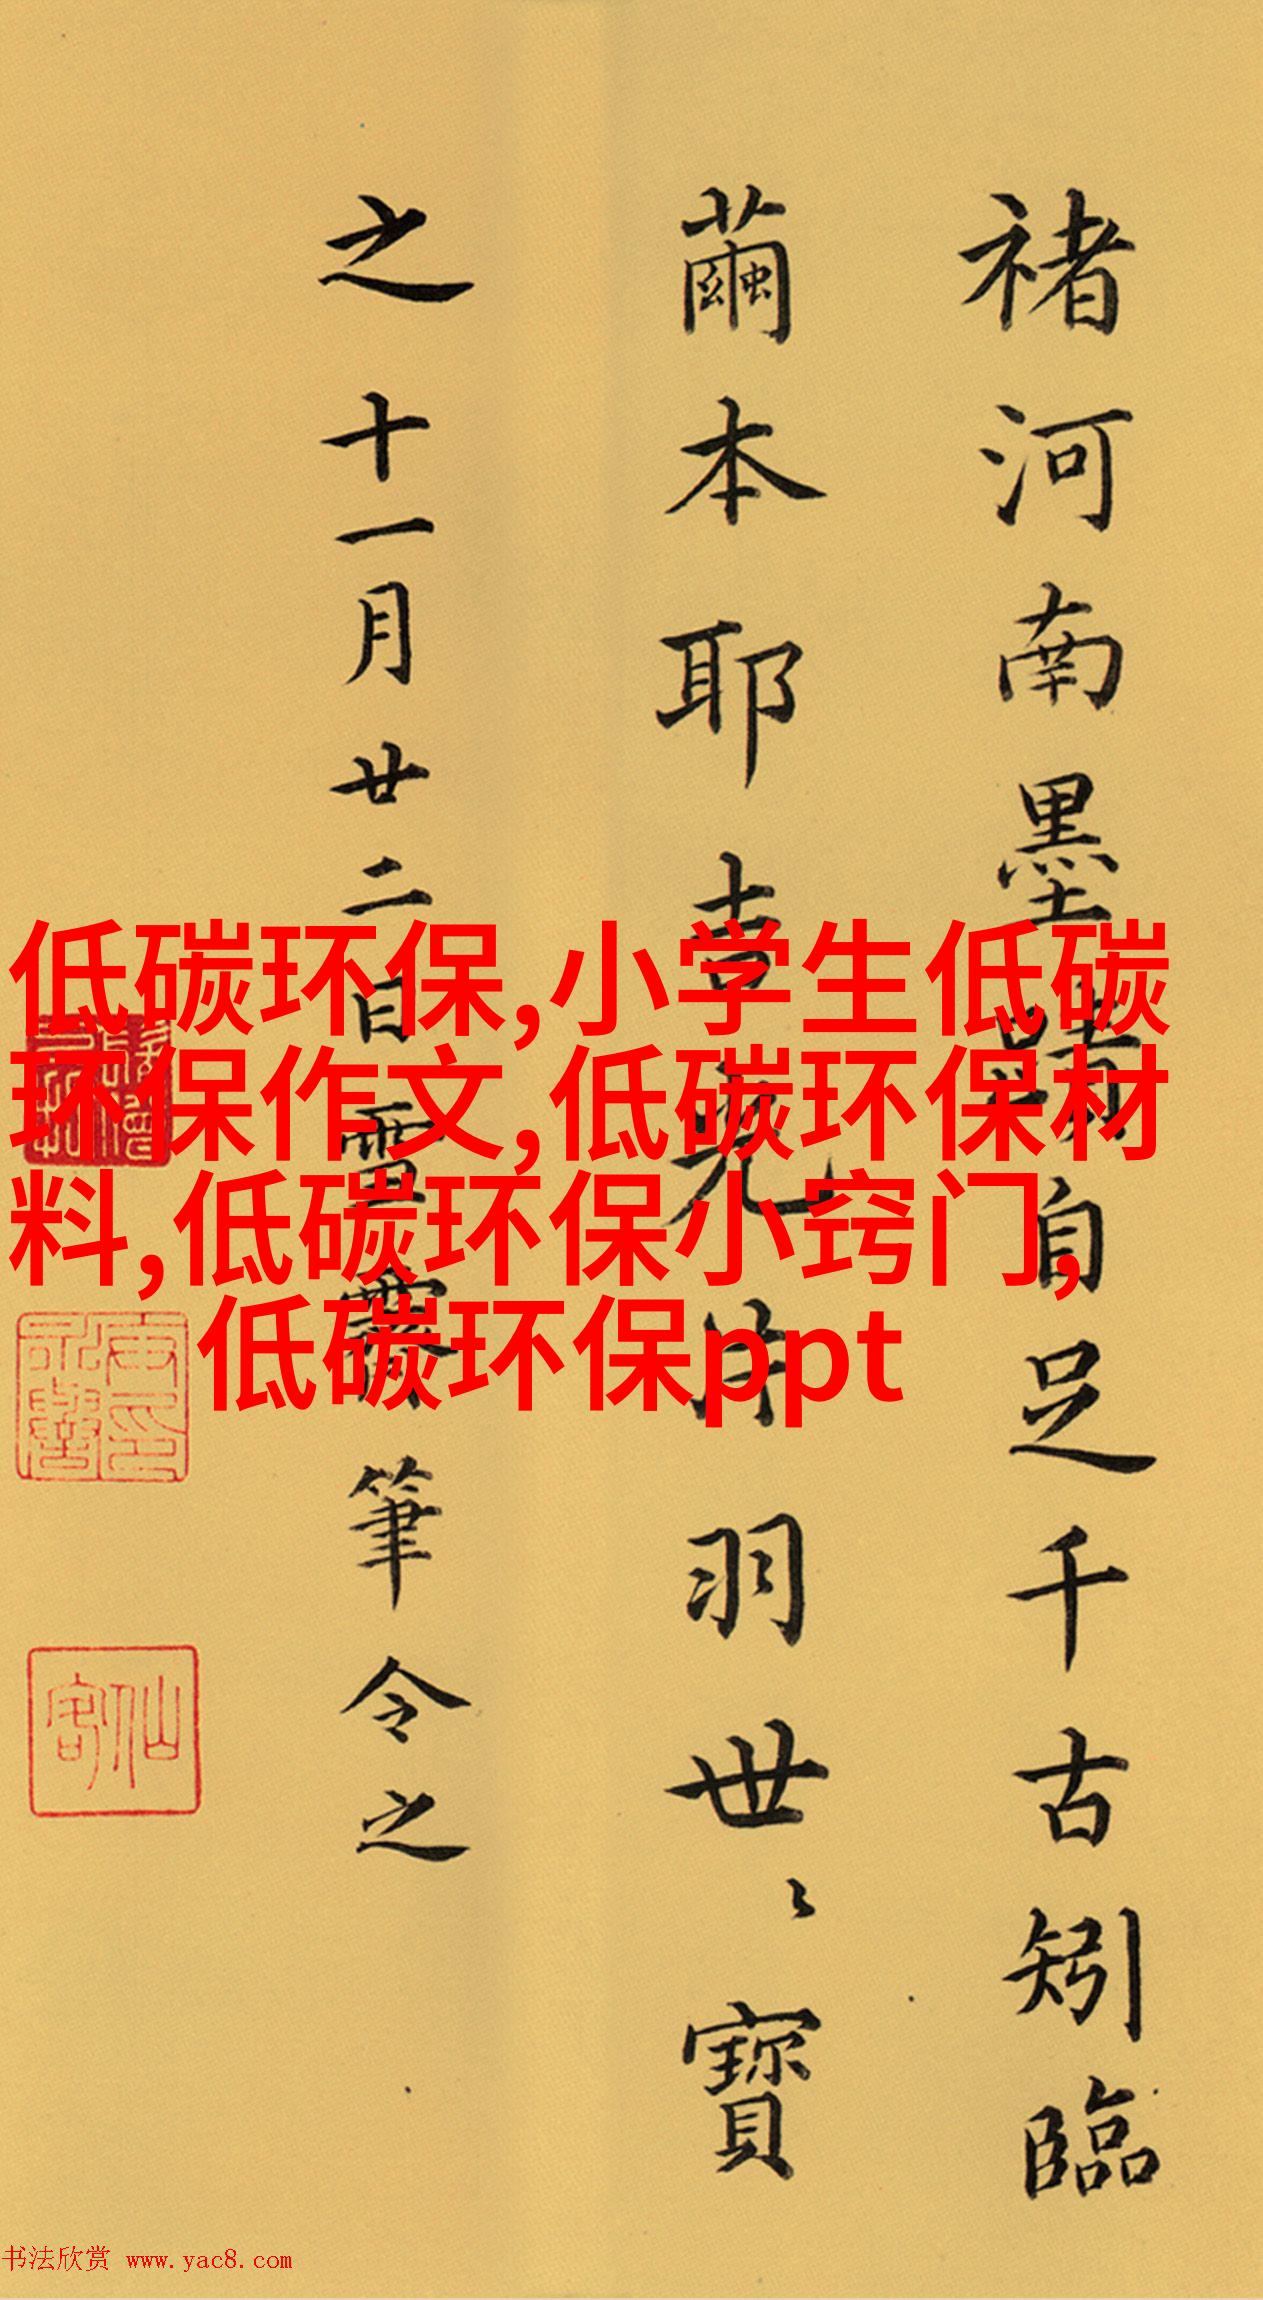 褚河南墨蹟自足千古矧臨
繭本耶吉光片羽世〻寶
之十一月廿二日雪霽筆令之
低碳环保,小学生低碳
环保作文,低碳环保材
料,低碳环保小窍门,
低碳环保ppt
仙客
书法欣赏 www.yac8.com